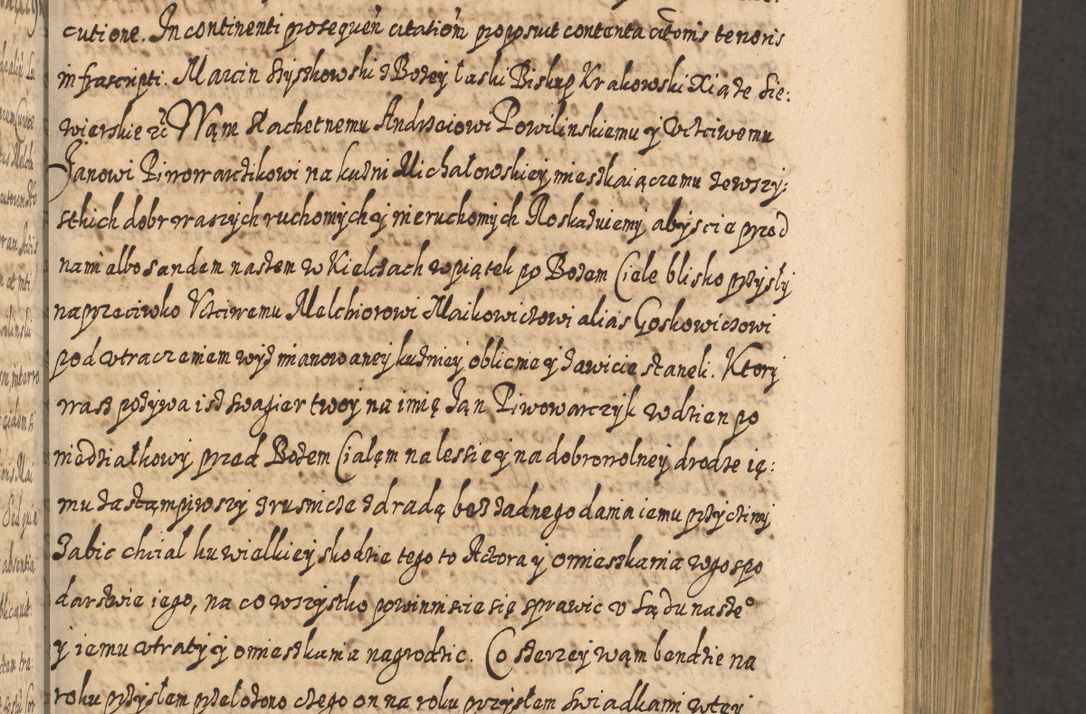 cutione. In continenti prosequen̄ citatiōn proposuit contenta citōnis tenoris
infrascripti. Marcin Szyszkowski z Bożey łaski Biskup Krakowski Xiąże Sie:
wierskie etc̄ Wąm Slachetnemu Andrzeiowi Powilinskiemu y Vcżciwemu
Janowi Piwowarcżikowi na kuźni Michałowskiey mieszkaiączemu zewszy:
stkich dobr waszych ruchomych y nieruchomych Roskazuiemy, abyscie przed
nami albo sandem naszem w Kielcżach w piątek po Bożem Ciele blisko przyszły
naprzeciwko Vcżciwemu Melchiorowi Maikowicżowi alias Goskowicżowi
pod vtraczeniem wyż mianowaney kuźniey oblicznie y zawicie stanęli. Ktory
was pożywa isz swagier twoy na imię Ján Piwowarczyk w dzien po
niedziałkowy przed Bożem Ciałęm na lessie y na dobrowolney drodze ię:
mu zastąmpiwszy z rusnicże zdradą bez żadnego dania iemu przycżiny
zabic chciał ku wielkiey skodzie tego to Actora y omieszkania w gospo
darstwie iego, na co wszystko powinniscie się sprawic v Sądu nasze°
y iemu vtraty y omieszkania nagrodzic. Co szerzey wąm bendzie na
roku przyszłem przełożono cżego on na roku przyszłem swiadkami wtey